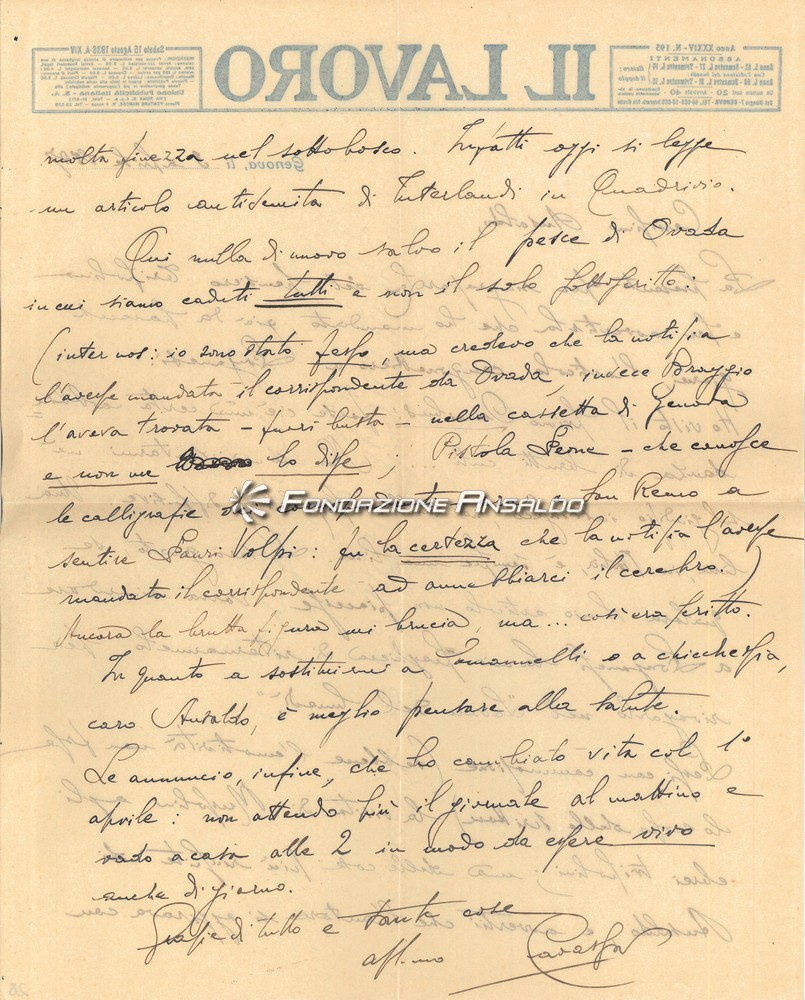 IL LAVORO
Anno XXXIV - N. 195
ABBONAMENTI
Sabato 15 Agosto 1936 - A. XIV
Unione Pubblicità Italiana
Genova, li
molta finezza nel sottobosco. Infatti oggi si legge
un articolo antisemita di Interlandi in Quadrivio.
Qui nulla di nuovo salvo il pesce di Ovada
in cui siamo caduti tutti e non il solo sottoscritto:
(inter nos: io sono stato fesso, ma credevo che la notizia
l'avesse mandata il corrispondente da Ovada; invece Broggio
l'aveva trovata - fuori busta - nella cassetta di Genova
e non me lo disse; Pistola Leone - che conosce
le calligrafie dei San Remo a
FONDAZIONE ANSALDO
sentire Lauri Volpi: fu la certezza che la notizia l'avesse
mandata il corrispondente ad annebbiarci il cerebro.)
Ancora la brutta figura mi brucia, ma... così era scritto.
In quanto a sostituirmi a o a chicchessia,
caro Ansaldo, è meglio pensare alla salute.
Le annuncio, infine, che ho cambiato vita col 1°
aprile: non attendo più il giornale al mattino e
vado a casa alle 2 in modo da essere vivo
anche di giorno.
Grazie di tutto e tante cose
aff.mo